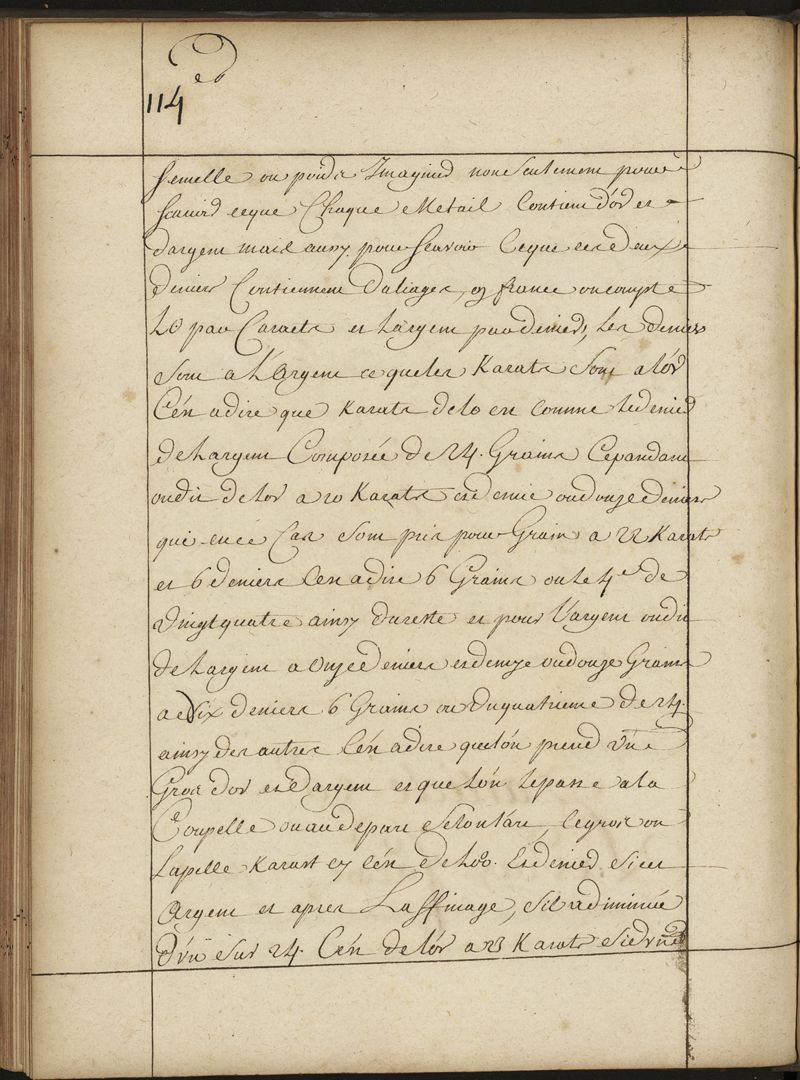 114
semelle ou poids Imaginé non seulement pour
scauoir ceque Chaque Metail Contient d'or et
dargent mais aussy pour scavoir ceque ces deux
deniers Contiennent daliages, en france on compte
LO par Caracts et Largent par deniers, Les deniers
sont a L'Argent ce queles Karats sont alór
C'én adire que Karats delo en comme Ledenié
de Largent Composée de 24. Grains Cependant
on dit delor a 20 Karats et demie oudouze deniers
qui en ce Cas sont pris pour Grain a 22 Karats
et 6 deniers C'en adire 6 Grains ou le 4e de
Vingtquatre ainsy dureste et pour l'argent ondit
de Largent a Onze deniers et demye oudouze Grains
a Dix deniers 6 Grains ou Duquatrieme de 24.
ainsy des autres C'én adire quelón prend Vne
Gros dor et dargent et que lón lepasse ala
Coupelle ou au depart selon lárt, legros on
Lapelle Karast ey cén de Lóo. et denied si cet
Argent et apres Laffinage, sil a diminüé
d'vn sur 24. C'én delór a 23 Karats si d'vne